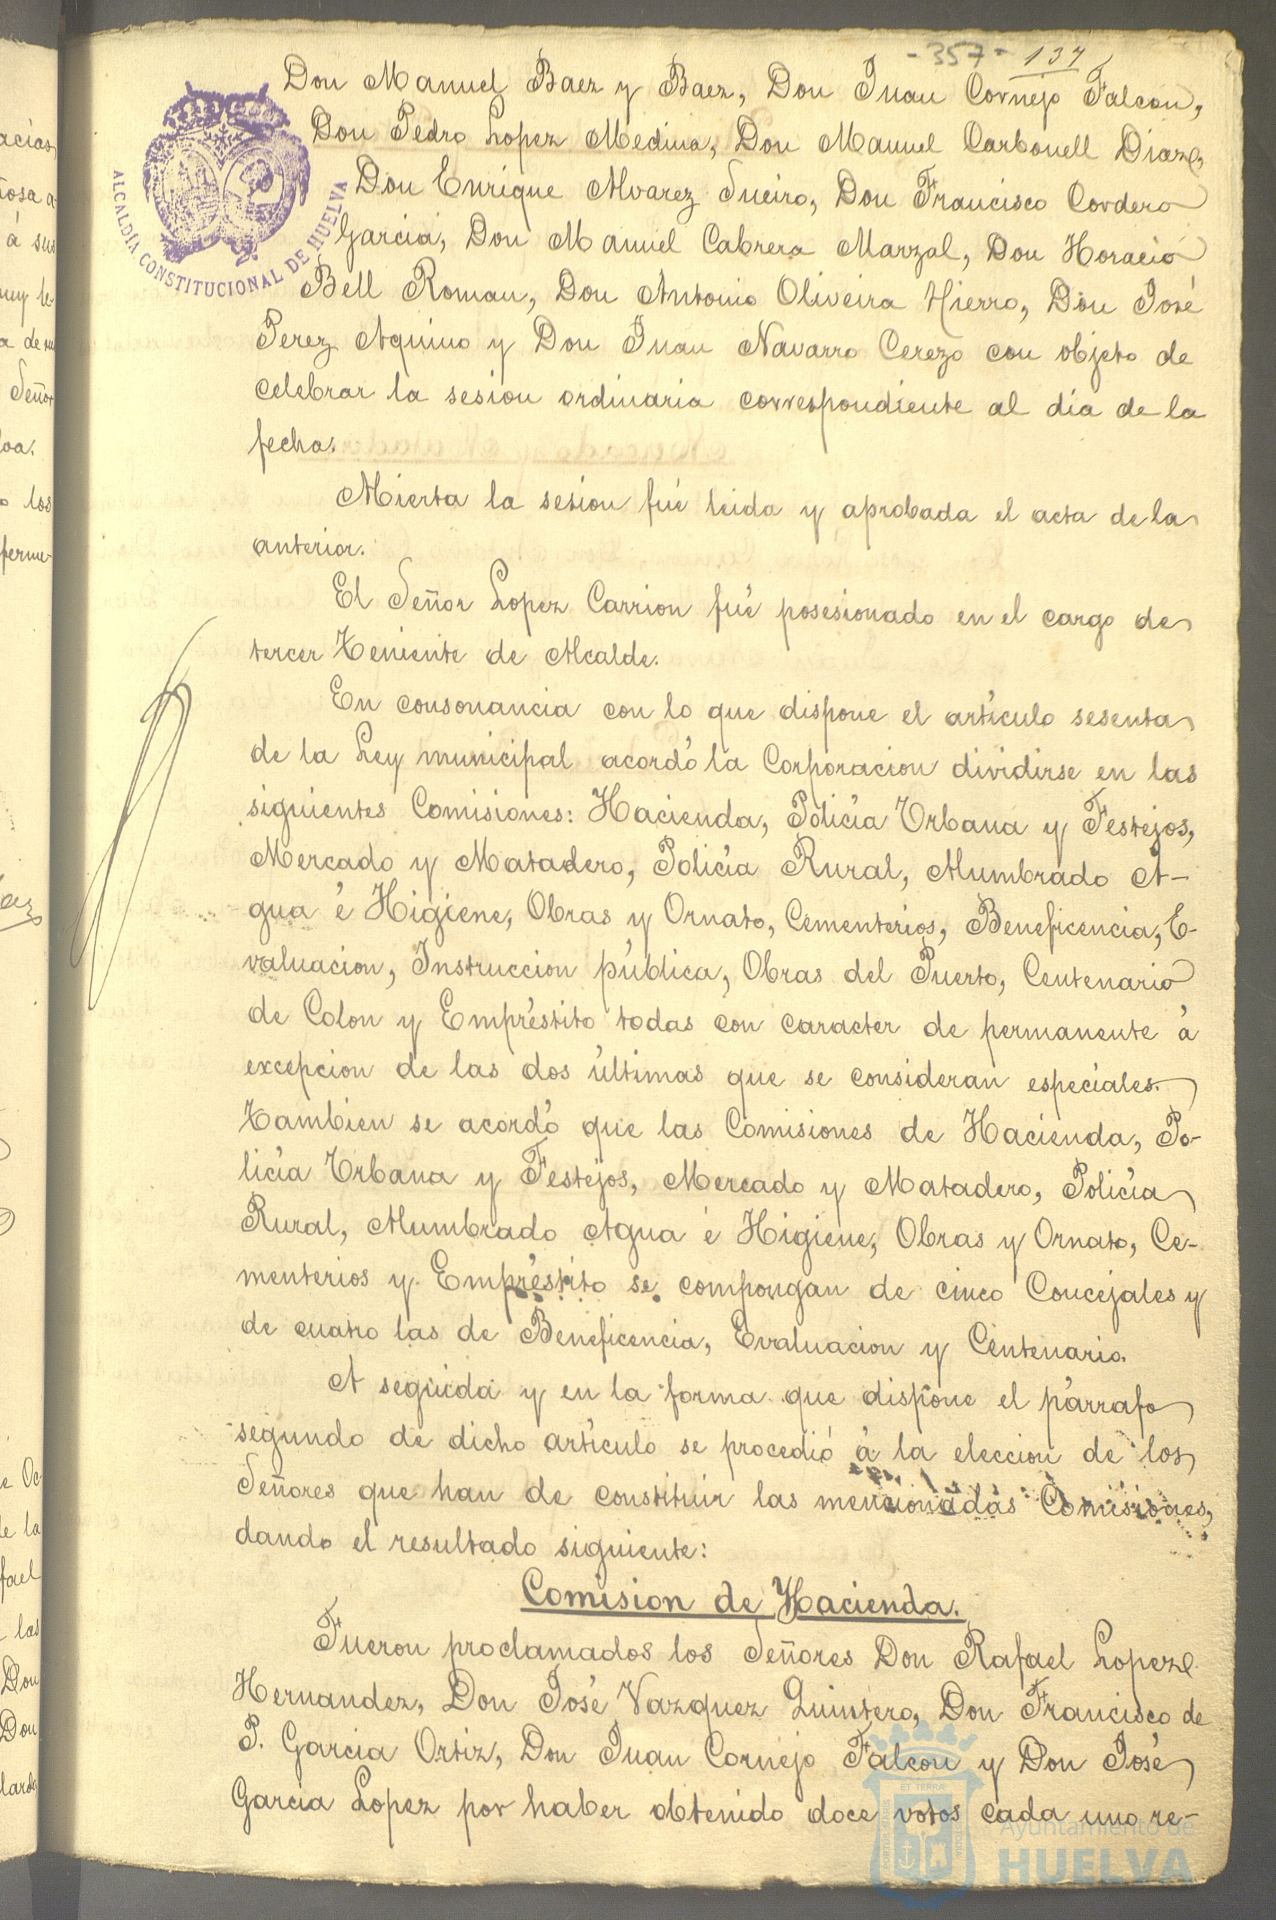 -357- 137
Don Manuel Baez y Baez, Don Juan Cornejo Falcon,
Don Pedro Lopez Medina, Don Manuel Carbonell Diaz,
Don Enrique Alvarez Sueiro, Don Francisco Cordero
Garcia, Don Manuel Cabrera Marzal, Don Horacio
Bell Roman, Don Antonio Oliveira Hierro, Don José
Perez Aquino y Don Juan Navarro Cerezo con objeto de
celebrar la sesion ordinaria correspondiente al dia de la
fecha.
Abierta la sesion fué leida y aprobada el acta de la
anterior.
El Señor Lopez Carrion fué posesionado en el cargo de
tercer Teniente de Alcalde.
En consonancia con lo que dispone el artículo sesenta
de la Ley municipal acordó la Corporacion dividirse en las
siguientes Comisiones: Hacienda, Policía Urbana y Festejos,
Mercado y Matadero, Policía Rural, Alumbrado A-
gua é Higiene, Obras y Ornato, Cementerios, Beneficencia, E-
valuacion, Instruccion pública, Obras del Puerto, Centenario
de Colon y Empréstito todas con caracter de permanente á
excepcion de las dos últimas que se consideran especiales.
Tambien se acordó que las Comisiones de Hacienda, Po-
licía Urbana y Festejos, Mercado y Matadero, Policía
Rural, Alumbrado Agua é Higiene, Obras y Ornato, Ce-
menterios y Empréstito se compongan de cinco Concejales y
de cuatro las de Beneficencia, Evaluacion y Centenario.
A seguida y en la forma que dispone el párrafo
segundo de dicho artículo se procedió á la eleccion de los
Señores que han de constituir las mencionadas Comisiones,
dando el resultado siguiente:
Comision de Hacienda.
Fueron proclamados los Señores Don Rafael Lopez
Hernandez, Don José Vazquez Quintero, Don Francisco de
P. Garcia Ortiz, Don Juan Cornejo Falcon y Don José
Garcia Lopez por haber obtenido doce votos cada uno re-
ALCALDÍA CONSTITUCIONAL DE HUELVA
Ayuntamiento de
HUELVA